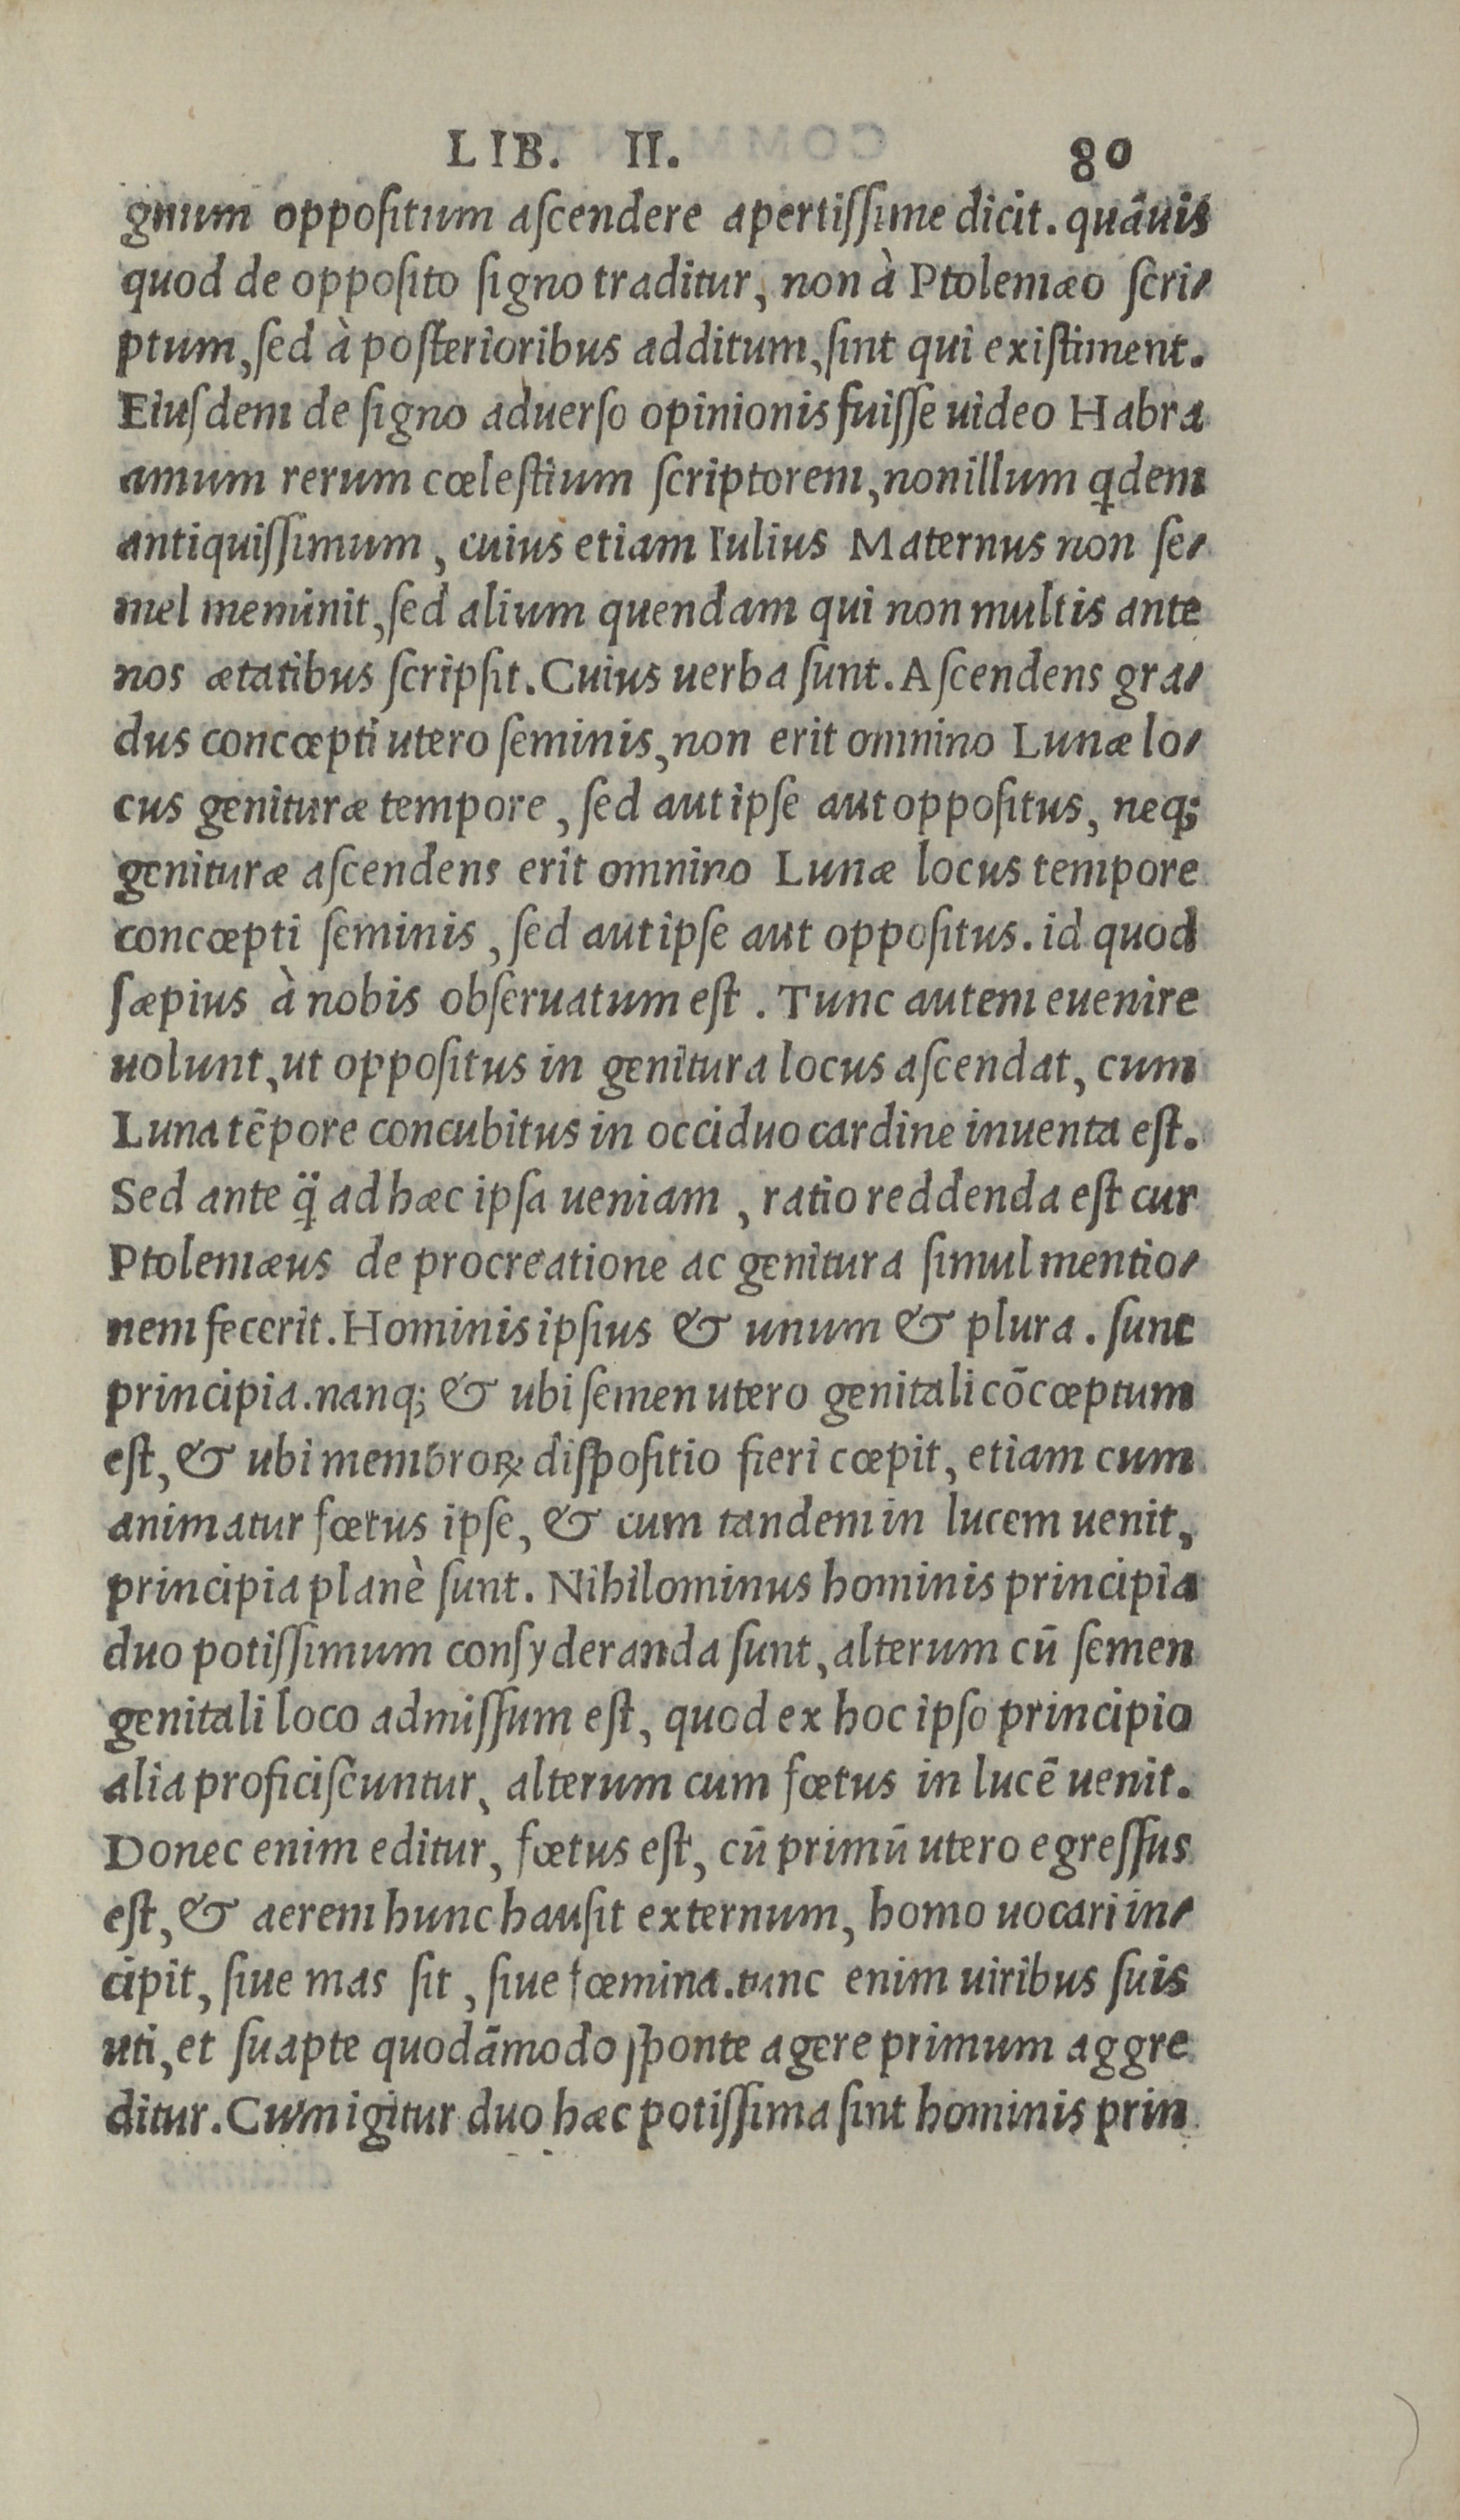 LIB. II. 80
gnum oppoſitum aſcendere apertiſſime dicit. quāuis
quod de oppoſito ſigno traditur, non à Ptolemæo ſcri-
ptum, ſed à poſterioribus additum, ſint qui exiſtiment.
Eiuſdem de ſigno aduerſo opinionis fuiſſe uideo Habra
amum rerum cœleſtium ſcriptorem, non illum ꝗdem
antiquiſſimum, cuius etiam Iulius Maternus non ſe-
mel meminit, ſed alium quendam qui non multis ante
nos ætatibus ſcripſit. Cuius uerba ſunt. Aſcendens gra-
dus concœpti utero ſeminis, non erit omnino Lunæ lo-
cus genituræ tempore, ſed aut ipſe aut oppoſitus, neq;
genituræ aſcendens erit omnino Lunæ locus tempore
concœpti ſeminis, ſed aut ipſe aut oppoſitus. id quod
ſæpius à nobis obſeruatum eſt. Tunc autem euenire
uolunt, ut oppoſitus in genitura locus aſcendat, cum
Luna tēpore concubitus in occiduo cardine inuenta eſt.
Sed ante q̈ ad hæc ipſa ueniam, ratio reddenda eſt cur
Ptolemæus de procreatione ac genitura ſimul mentio-
nem fecerit. Hominis ipſius & unum & plura. ſunt
principia. nanq; & ubi ſemen utero genitali cōcœptum
eſt, & ubi membroꝝ diſpoſitio fieri cœpit, etiam cum
animatur fœtus ipſe, & cum tandem in lucem uenit,
principia planè ſunt. Nihilominus hominis principia
duo potiſſimum conſyderanda ſunt, alterum cū ſemen
genitali loco admiſſum eſt, quod ex hoc ipſo principio
alia proficiſcuntur, alterum cum fœtus in lucē uenit.
Donec enim editur, fœtus eſt, cū primū utero egreſſus
eſt, & aerem hunc hauſit externum, homo uocari in-
cipit, ſiue mas ſit, ſiue fœmina. tunc enim uiribus ſuis
uti, et ſuapte quodāmodo ſponte agere primum aggre
ditur. Cum igitur duo hæc potiſſima ſint hominis prin